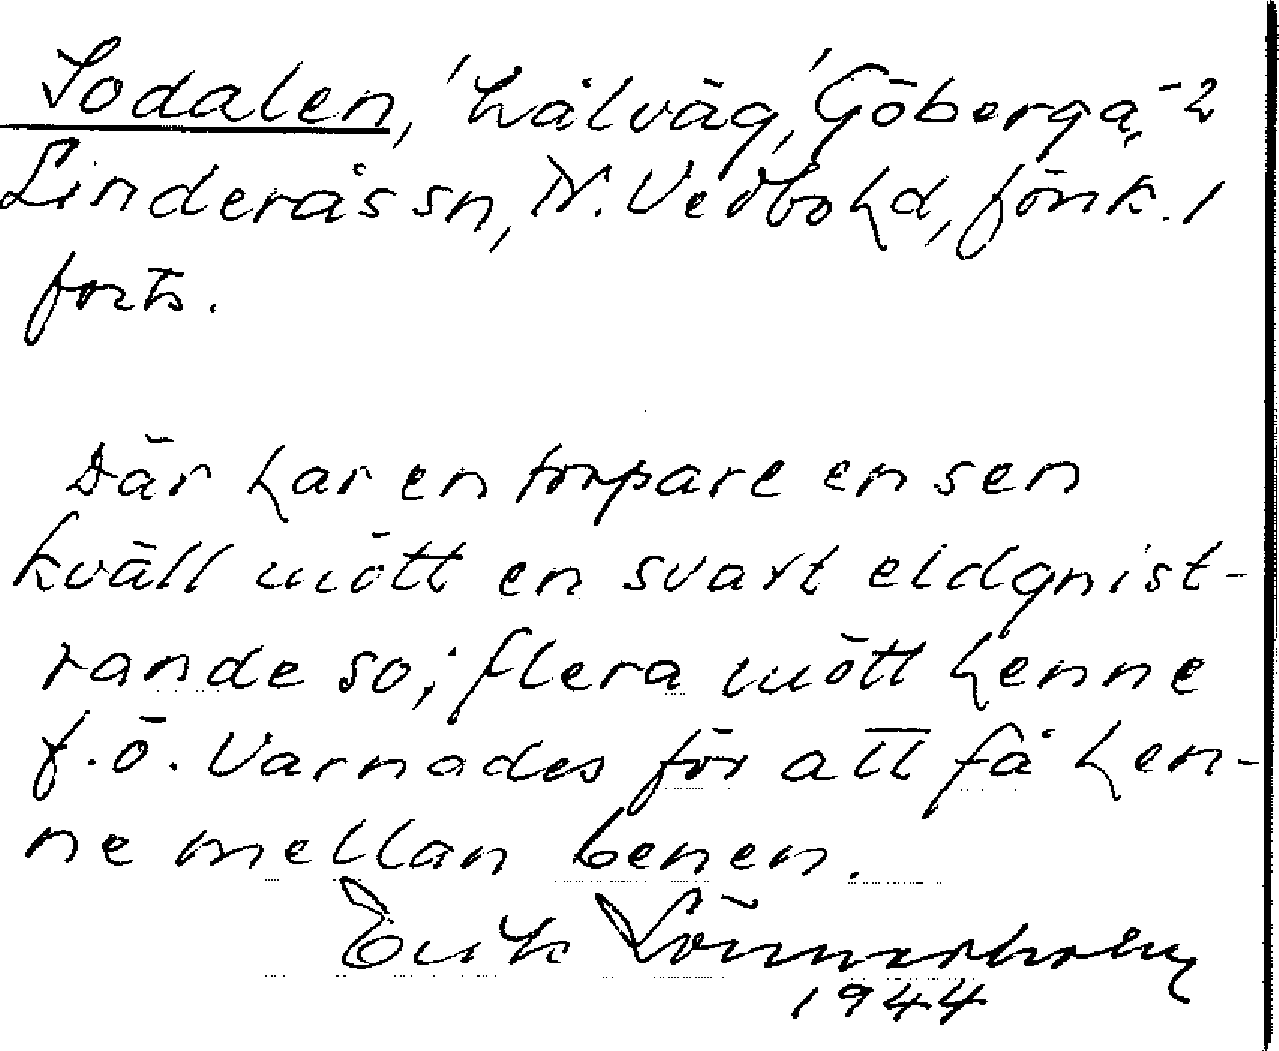 Sodalen, 'hålväg,' Göberga, - 2
Linderås sn, N. Vedbo hd, Jönk. l
forts.
Där har en torpare en sen
kväll mött en svart eldgnist-
rande so; flera mött henne
f.ö. Varnades för att få hen-
ne mellan benen.
Erik Lönnerholm
1944